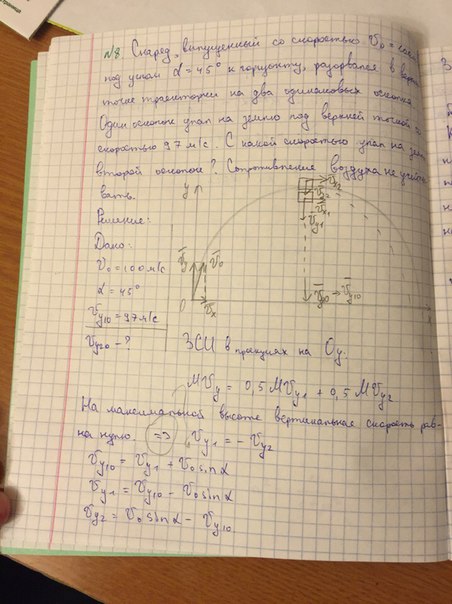 №8. Снаряд, выпущенный со скоростью V₀ =
под углом α = 45° к горизонту, разорвался в
точке траектории на два одинаковых осколка
Один осколок упал на землю под верхней точкой со
скоростью 97 м/с. С какой скоростью упал на
второй осколок? Сопротивление воздуха не
вать.
Решение:
Дано:
V₀ = 100 м/с
α = 45°
Vy10 = 97 м/с
Vy20 - ?
y
Vy V₀
0 Vx
Vy1
Vy10
x
ЗСИ в проекциях на Oy:
MVy = 0,5 MVy1 + 0,5 MVy2
На максимальной высоте вертикальная скорость рав-
на нулю. => Vy1 = - Vy2
Vy10 = Vy1 + V₀ sin α
Vy1 = Vy10 - V₀ sin α
Vy2 = V₀ sin α - Vy10